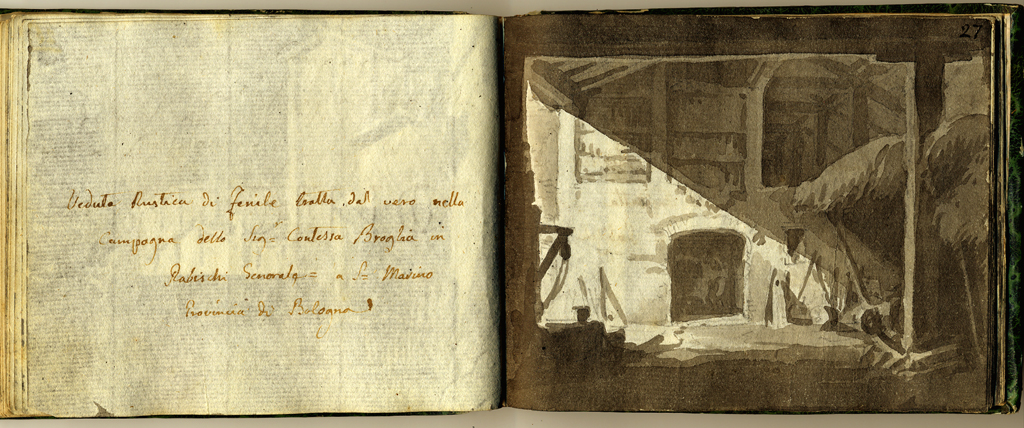 Veduta Rustica di Fenile tratta dal vero nella
Campagna della Sig.ª Contessa Broglia in
a S.n Marino
Provincia di Bologna
27